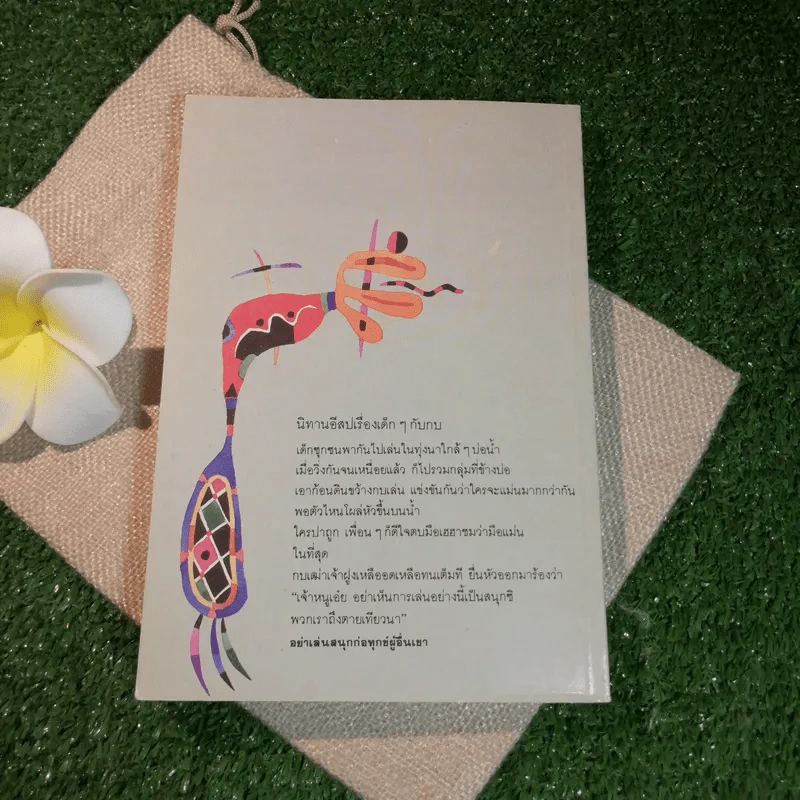 นิทานอีสปเรื่องเด็ก ๆ กับกบ
เด็กซุกซนพากันไปเล่นในทุ่งนาใกล้ ๆ บ่อน้ำ
เมื่อวิ่งกันจนเหนื่อยแล้ว ก็ไปรวมกลุ่มที่ข้างบ่อ
เอาก้อนดินขว้างกบเล่น แข่งขันกันว่าใครจะแม่นมากกว่ากัน
พอตัวไหนโผล่หัวขึ้นบนน้ำ
ใครปาถูก เพื่อน ๆ ก็ดีใจตบมือเฮฮาชมว่ามือแม่น
ในที่สุด
กบเฒ่าเจ้าฝูงเหลืออดเหลือทนเต็มที ยื่นหัวออกมาร้องว่า
“เจ้าหนูเอ๋ย อย่าเห็นการเล่นอย่างนี้เป็นสนุกซิ
พวกเราถึงตายเทียวนา”
อย่าเล่นสนุกก่อทุกข์ผู้อื่นเขา